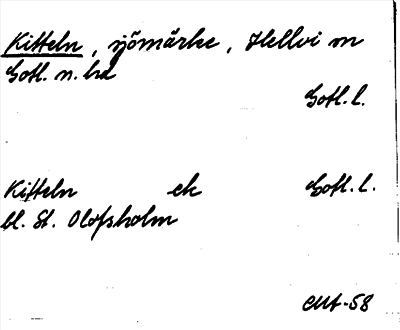 Kitteln, sjömärke, Hellvi sn
Gotl. n. hd
Gotl. l.
Kitteln ek Gotl. l.
bl. St. Olofsholm
CMA-58